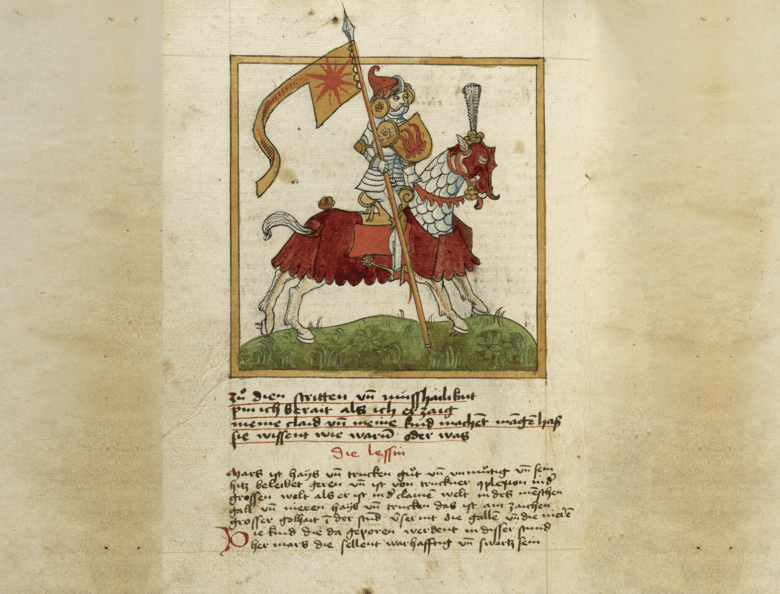 zů dien stritten vn̄ misshālikait
pin ich berait als ich erzaig
meine claid vn̄ meine kind machent mange has
sie wissent wie warū oder was
die lessin
Mars ist hayß vn̄ trucken gůt vn̄ vnmůtig vn̄ sein
hitz beleibet geren vn̄ ist von truckner 9plexion in d
grossen welt als er ist in d clainē welt in des mēschen
gall vn̄ meren hayß vn̄ trucken das ist am zaichen
grosser der stund die gallē vn̄ die
Die kind die da geporen werdent in disser stund
her mars die sellent warhafftig vn̄ swartz sein